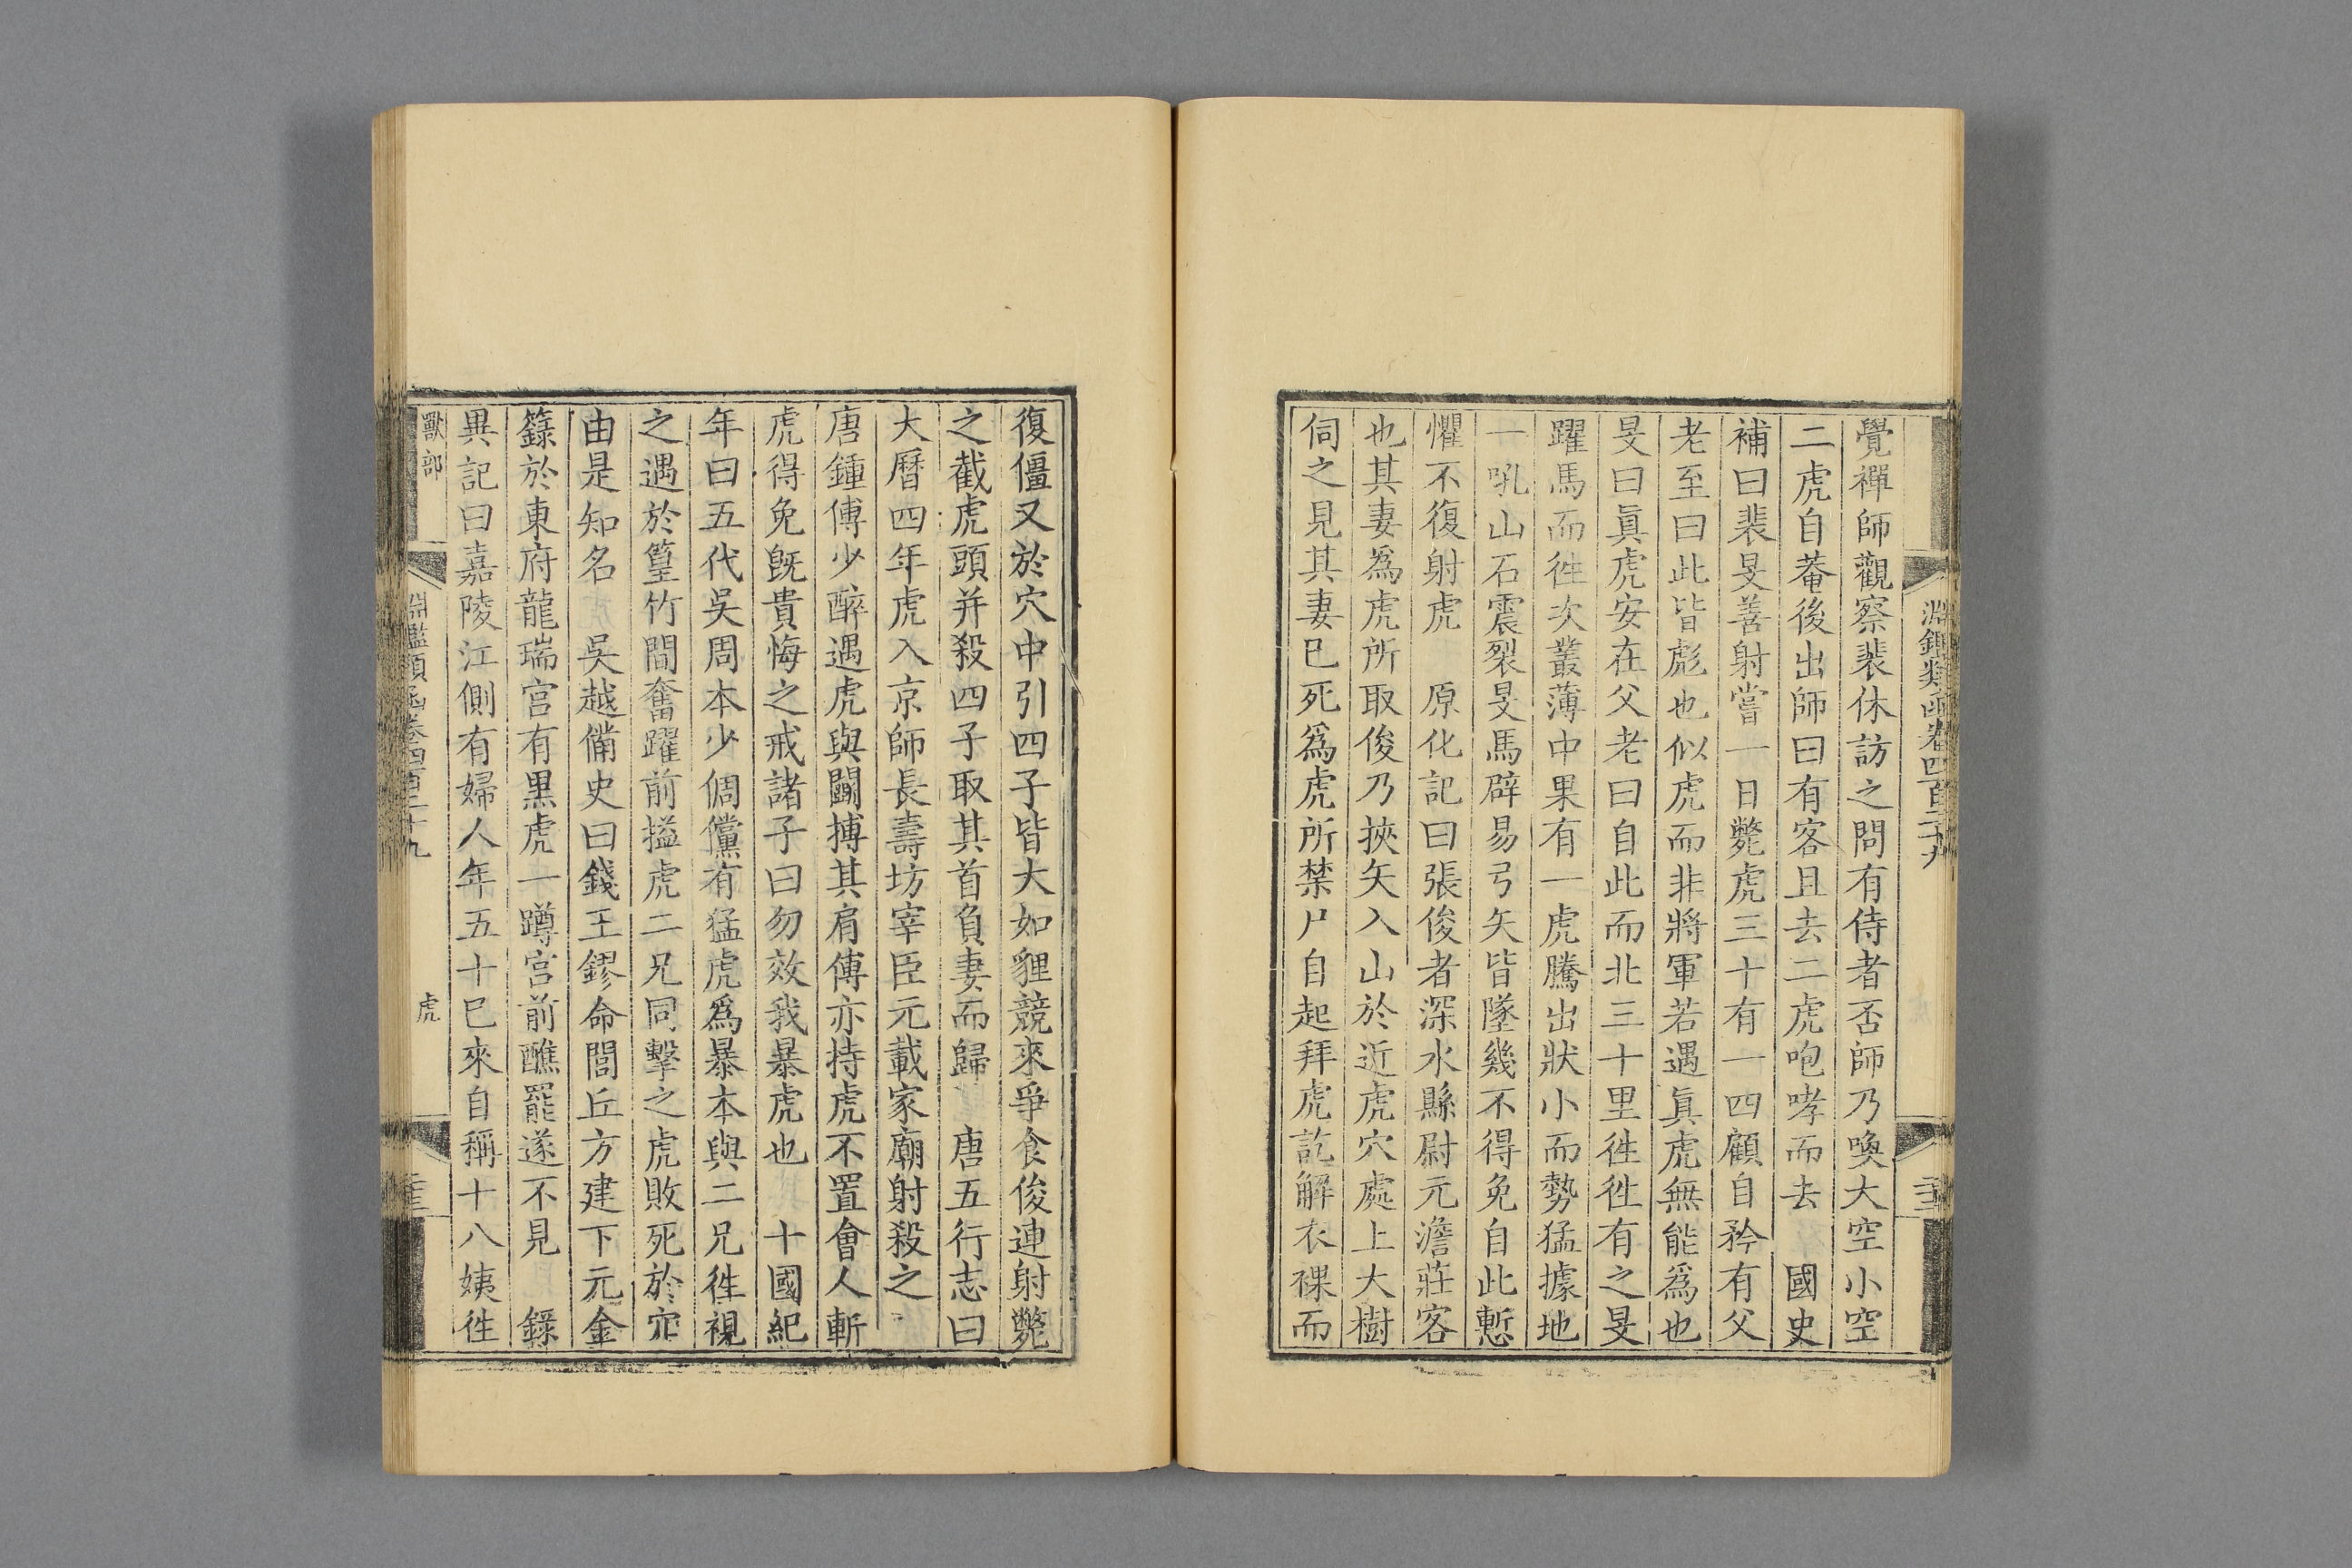 淵鑑類函卷四百二十九
覺禪師觀察裴休訪之問有侍者否師乃喚大空小空
二虎自菴後出師曰有客且去二虎咆哮而去　國史
補曰裴旻善射嘗一日斃虎三十有一四顧自矜有父
老至曰此皆彪也似虎而非將軍若遇眞虎無能爲也
旻曰眞虎安在父老曰自此而北三十里徃徃有之旻
躍馬而徃次叢薄中果有一虎騰出狀小而勢猛據地
一吼山石震裂旻馬辟易弓矢皆墜幾不得免自此慙
懼不復射虎　原化記曰張俊者深水縣尉元澹莊客
也其妻爲虎所取俊乃挾矢入山於近虎穴處上大樹
伺之見其妻已死爲虎所禁尸自起拜虎訖解衣裸而
復僵又於穴中引四子皆大如貍競來爭食俊連射斃
之截虎頭并殺四子取其首負妻而歸　唐五行志曰
大曆四年虎入京師長壽坊宰臣元載家廟射殺之
唐鍾傅少醉遇虎與鬬搏其肩傅亦持虎不置會人斬
虎得免旣貴悔之戒諸子曰勿效我暴虎也　十國紀
年曰五代吳周本少倜儻有猛虎爲暴本與二兄徃視
之遇於篁竹間奮躍前搤虎二兄同擊之虎敗死於穽
由是知名　吳越備史曰錢王鏐命閭丘方建下元金
籙於東府龍瑞宮有黑虎一蹲宮前醮罷遂不見　錄
異記曰嘉陵江側有婦人年五十已來自稱十八姨徃
獸部
淵鑑類函卷四百二十九
虎